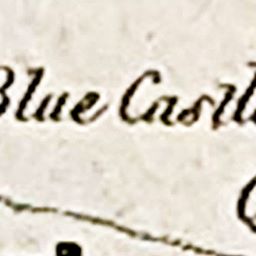 Blue Castl